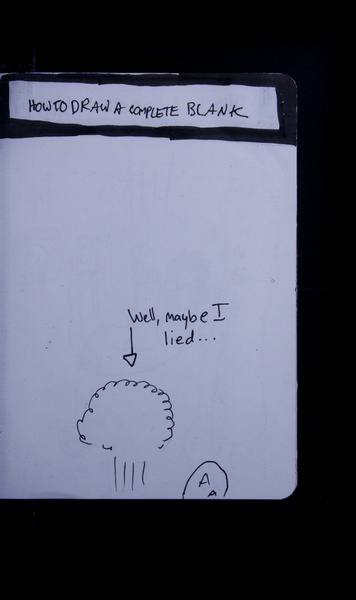 HOW TO DRAW A COMPLETE BLANK
Well, maybe I
lied...
A
A